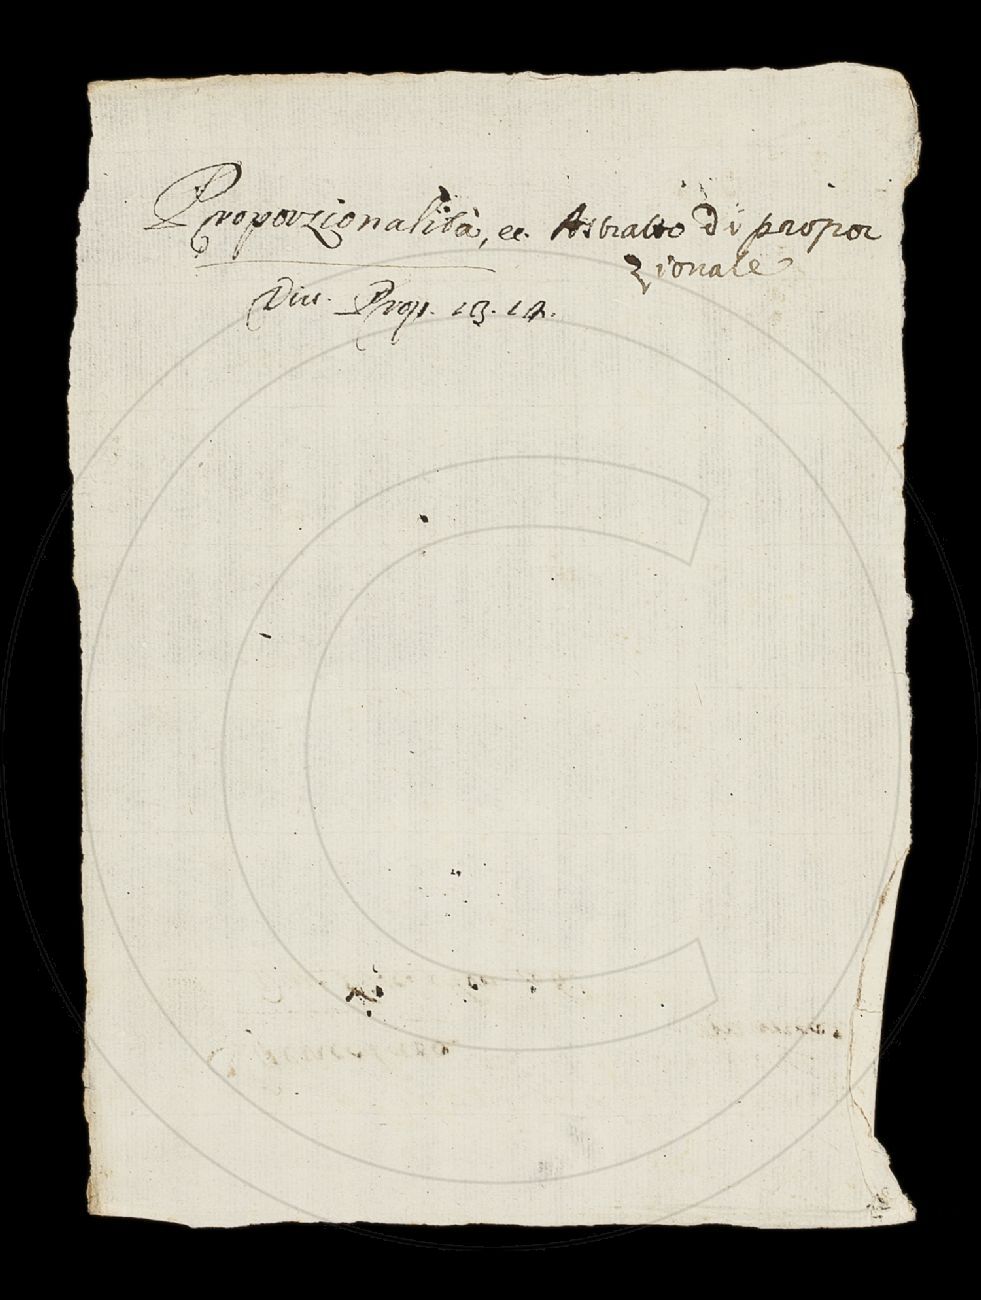 Proporzionalità, ec. Astratto di propor
zionale
Div. Prop. 13. 14.